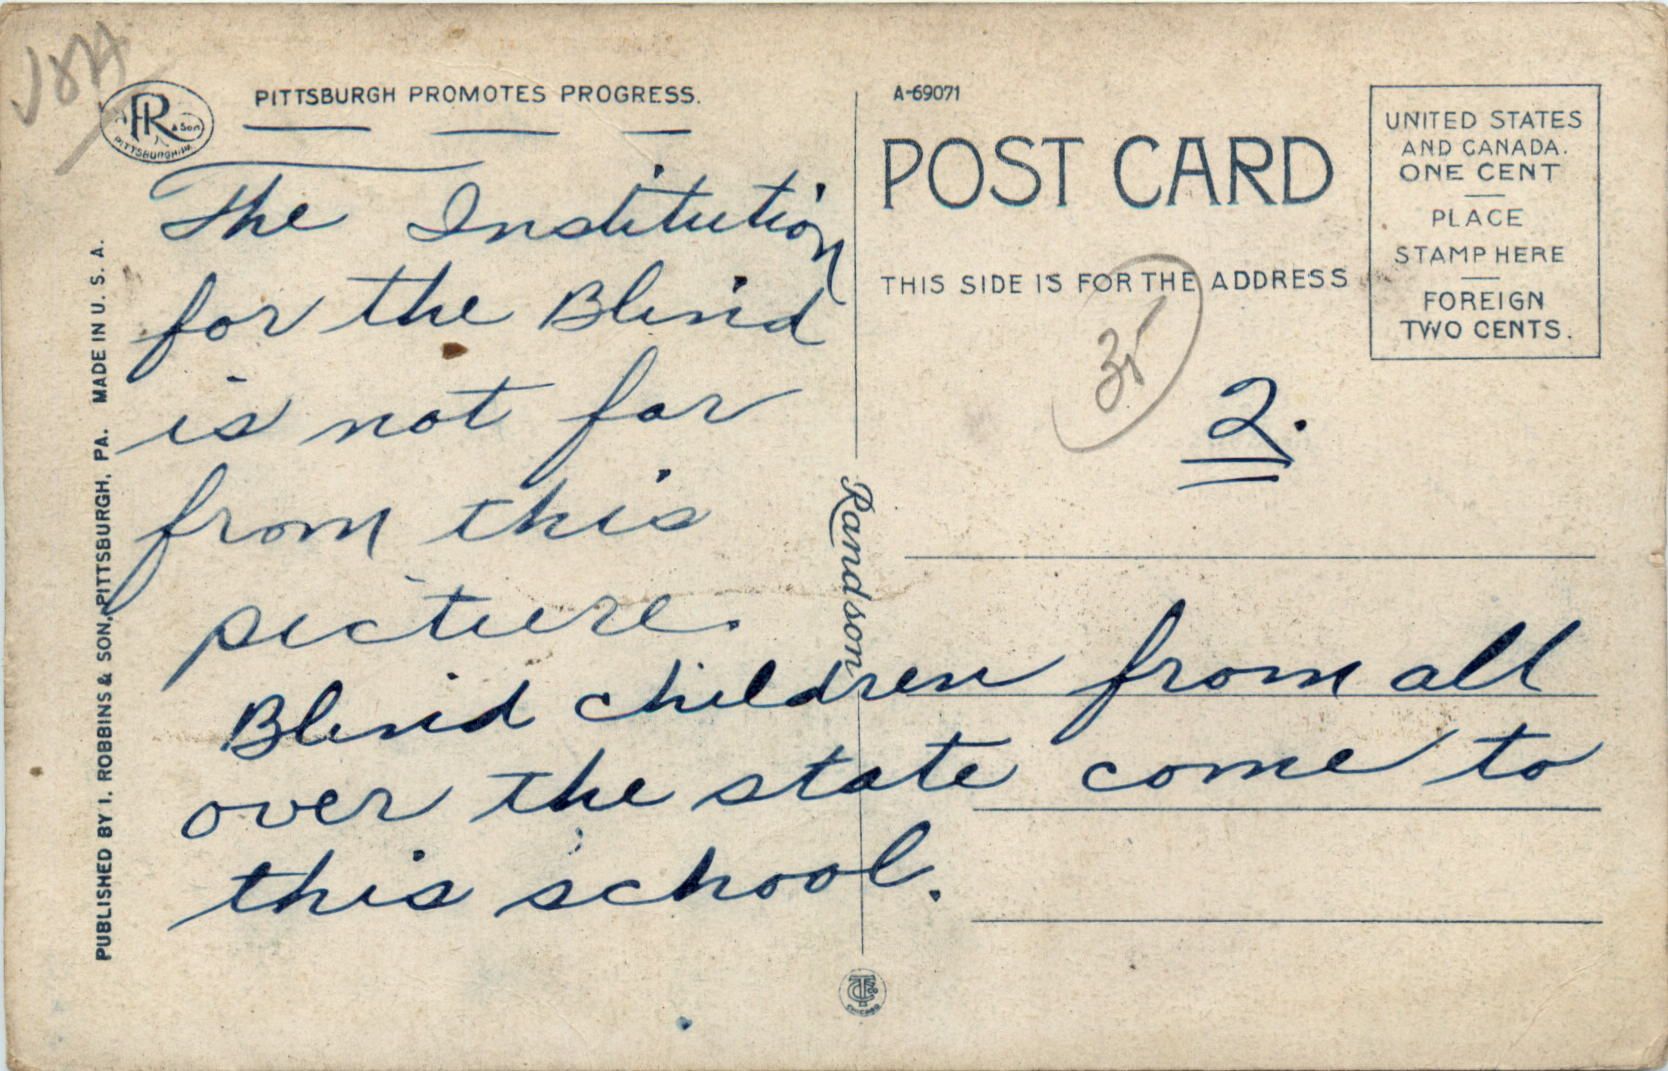 PITTSBURGH PROMOTES PROGRESS.
& Son
PITTSBURGH, PA.
The Institution
for the Blind
is not far
from this
picture.
Blind children from all
over the state come to
this school.
PUBLISHED BY I. ROBBINS & SON, PITTSBURGH, PA. MADE IN U. S. A.
Randson
A-69071
POST CARD
THIS SIDE IS FOR THE ADDRESS
UNITED STATES
AND CANADA.
ONE CENT
PLACE
STAMP HERE
FOREIGN
TWO CENTS.
35
2.
CHICAGO